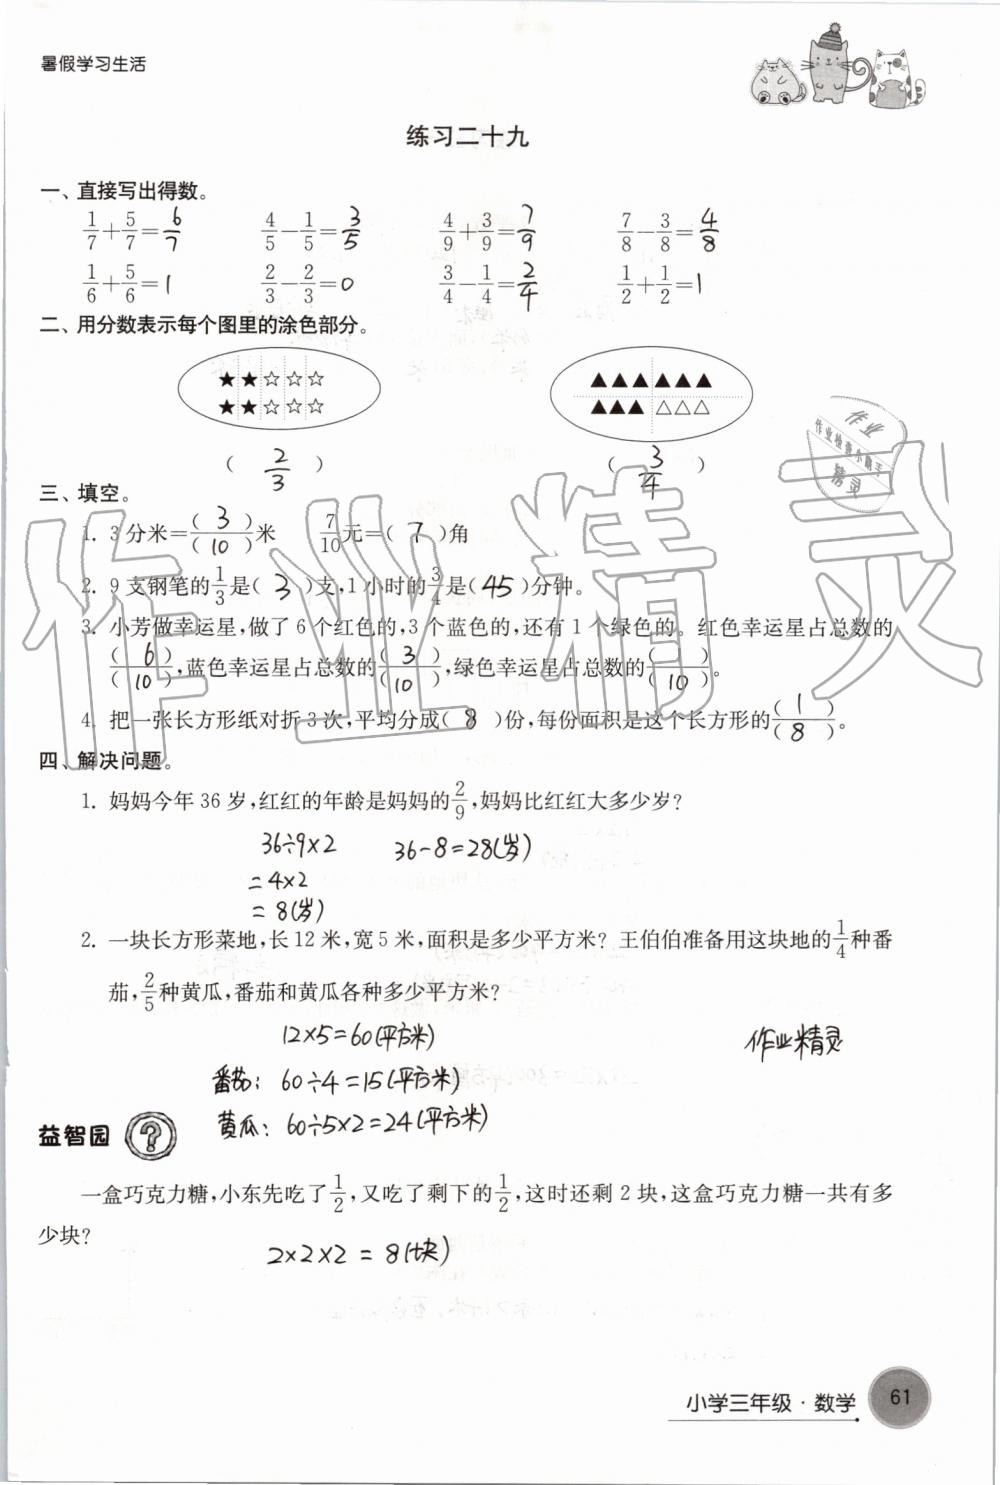 暑假学习生活
练习二十九
一、直接写出得数。
1/7+5/7=6/7 4/5-1/5=3/5 4/9+3/9=7/9 7/8-3/8=4/8
1/6+5/6=1 2/3-2/3=0 3/4-1/4=2/4 1/2+1/2=1
二、用分数表示每个图里的涂色部分。
( 2/3 ) ( 3/4 )
三、填空。
1. 3分米=( 3 )/( 10 )米 7/10元=( 7 )角
2. 9支钢笔的1/3是( 3 )支,1小时的3/4是( 45 )分钟。
3. 小芳做幸运星,做了6个红色的,3个蓝色的,还有1个绿色的。红色幸运星占总数的
( 6 )/( 10 ),蓝色幸运星占总数的( 3 )/( 10 ),绿色幸运星占总数的( )/( 10 )。
4. 把一张长方形纸对折3次,平均分成( 8 )份,每份面积是这个长方形的( 1 )/( 8 )。
四、解决问题。
1. 妈妈今年36岁,红红的年龄是妈妈的2/9,妈妈比红红大多少岁?
36÷9×2 36-8=28(岁)
=4×2
=8(岁)
2. 一块长方形菜地,长12米,宽5米,面积是多少平方米? 王伯伯准备用这块地的1/4种番
茄,2/5种黄瓜,番茄和黄瓜各种多少平方米?
12×5=60(平方米)
作业精灵
番茄: 60÷4=15(平方米)
黄瓜: 60÷5×2=24(平方米)
益智园 ?
一盒巧克力糖,小东先吃了1/2,又吃了剩下的1/2,这时还剩2块,这盒巧克力糖一共有多
少块?
2×2×2=8(块)
小学三年级·数学 61
作业精灵
作业
作业检查小助手
精灵